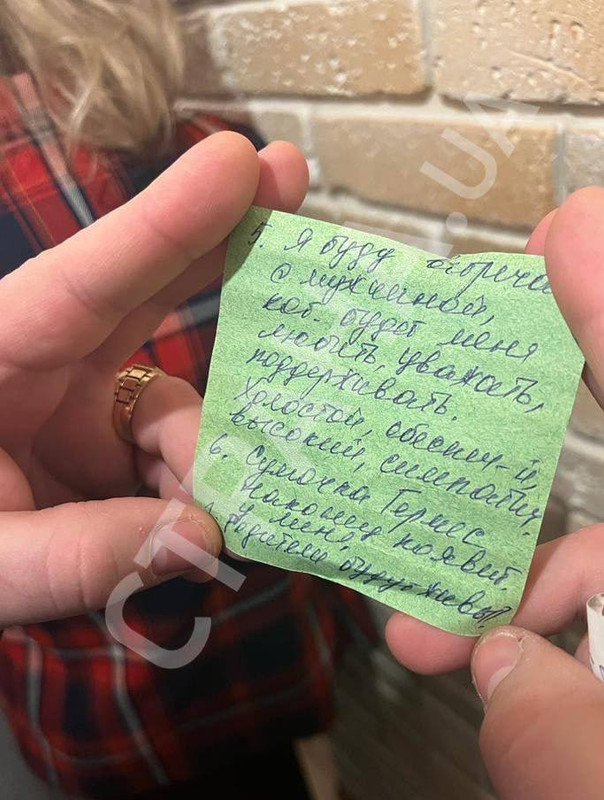 5. Я буду встречат
с мужчиной,
кот. будет меня
любить, уважать,
поддерживать.
Холостой, обеспеч-й,
высокий, симпатич.
6. Сумочка Гермес
наконец появит.
у меня,
Родители будут живы!